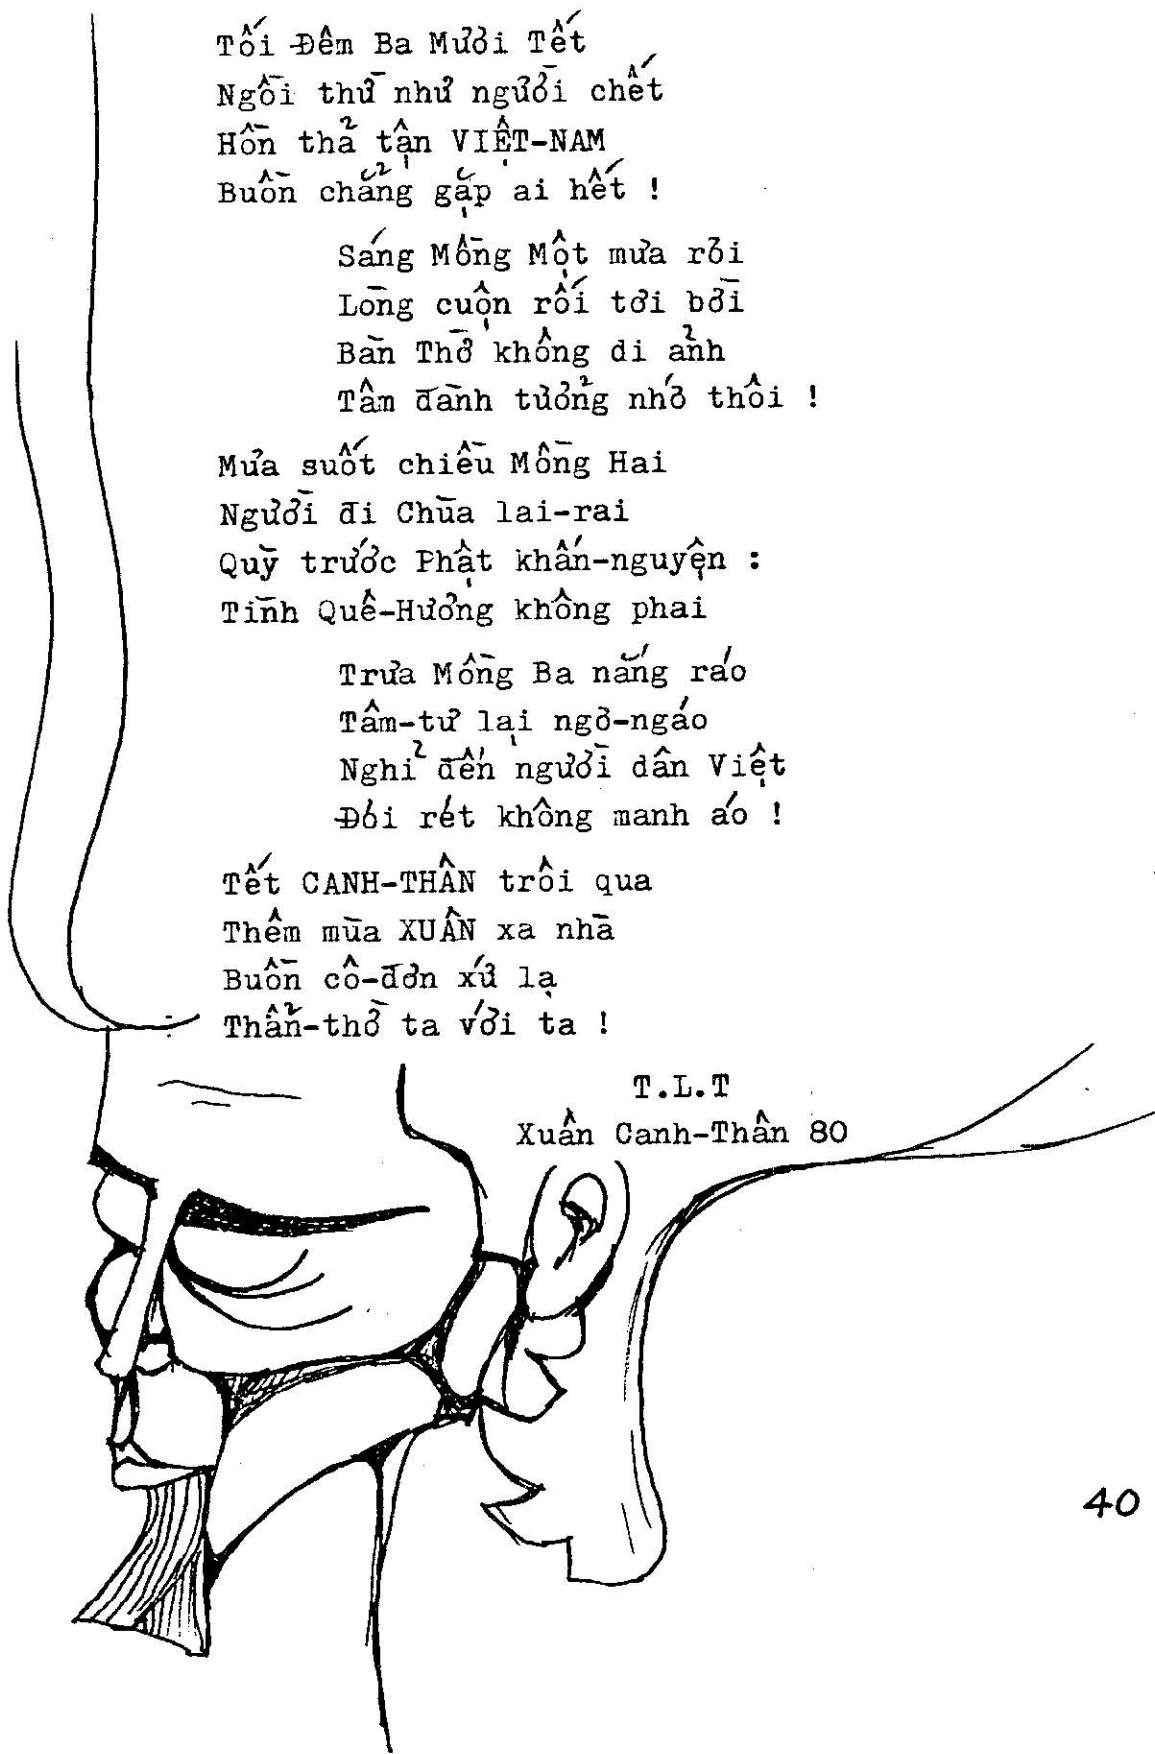 Tối Đêm Ba Mươi Tết
Ngồi thừ như người chết
Hồn thả tận VIỆT-NAM
Buồn chẳng gặp ai hết !
Sáng Mồng Một mưa rơi
Lòng cuộn rối tơi bời
Bàn Thờ không di ảnh
Tâm đành tưởng nhớ thôi !
Mưa suốt chiều Mồng Hai
Người đi Chùa lai-rai
Quỳ trước Phật khấn-nguyện :
Tình Quê-Hương không phai
Trưa Mồng Ba nắng ráo
Tâm-tư lại ngơ-ngáo
Nghỉ đến người dân Việt
Đói rét không manh áo !
Tết CANH-THÂN trôi qua
Thêm mùa XUÂN xa nhà
Buồn cô-đơn xứ lạ
Thẩn-thờ ta với ta !
T.L.T
Xuân Canh-Thân 80
40